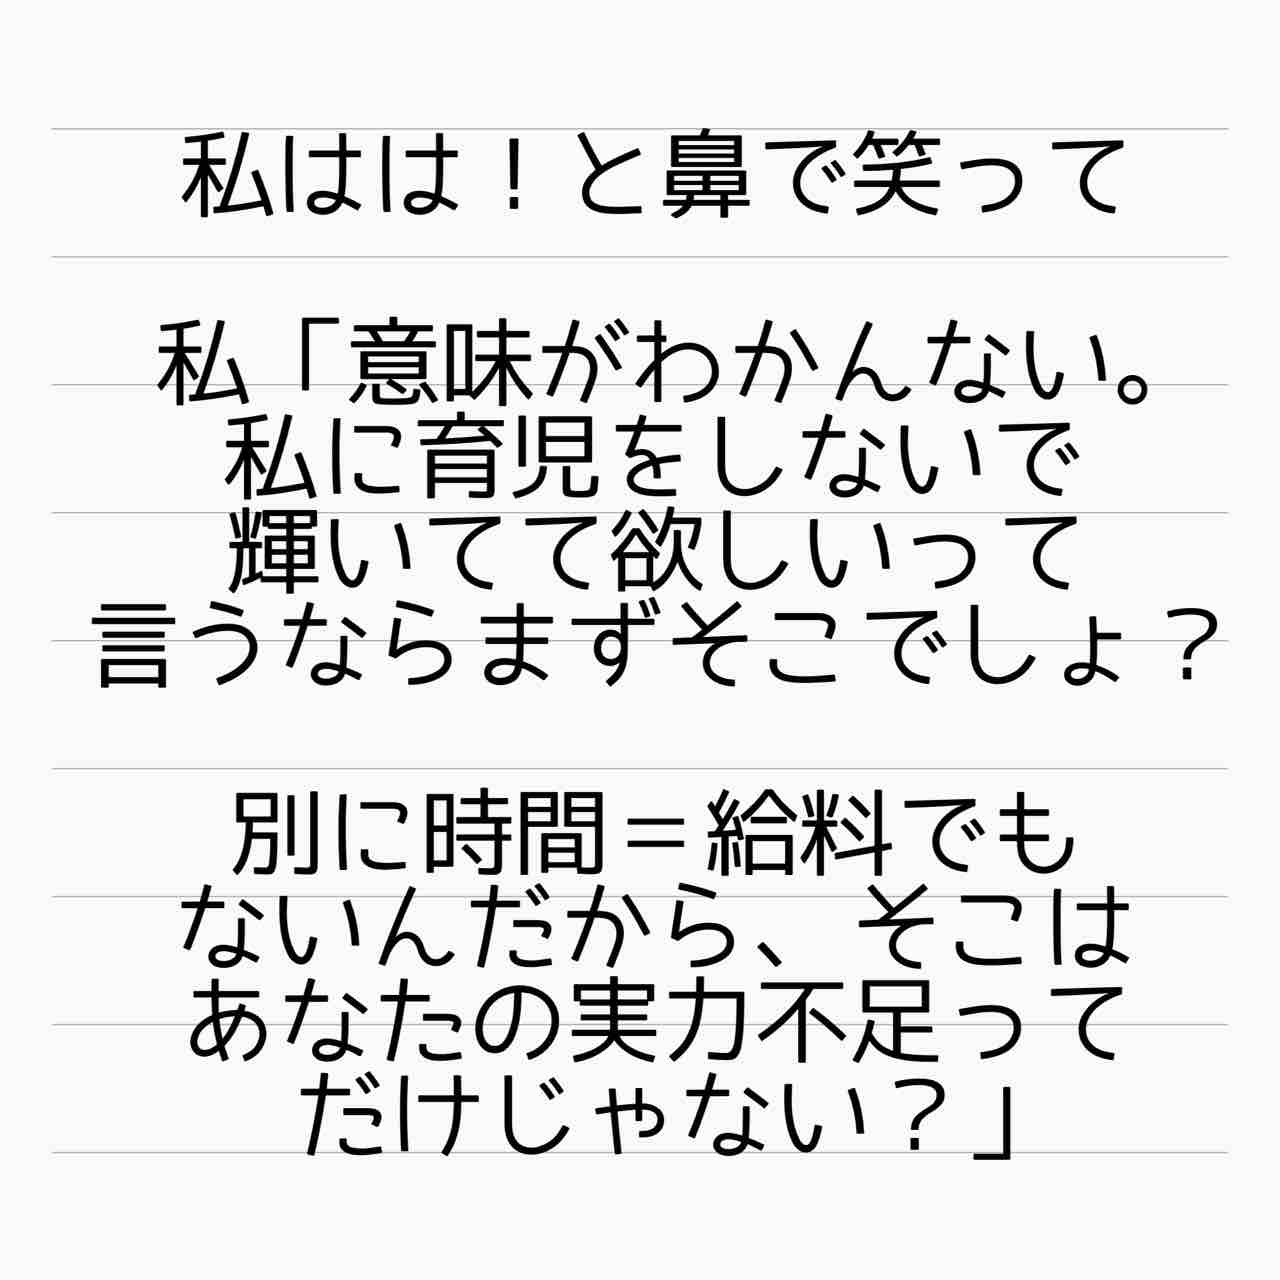 私はは！と鼻で笑って
私「意味がわかんない。
私に育児をしないで
輝いてて欲しいって
言うならまずそこでしょ？
別に時間＝給料でも
ないんだから、そこは
あなたの実力不足って
だけじゃない？」